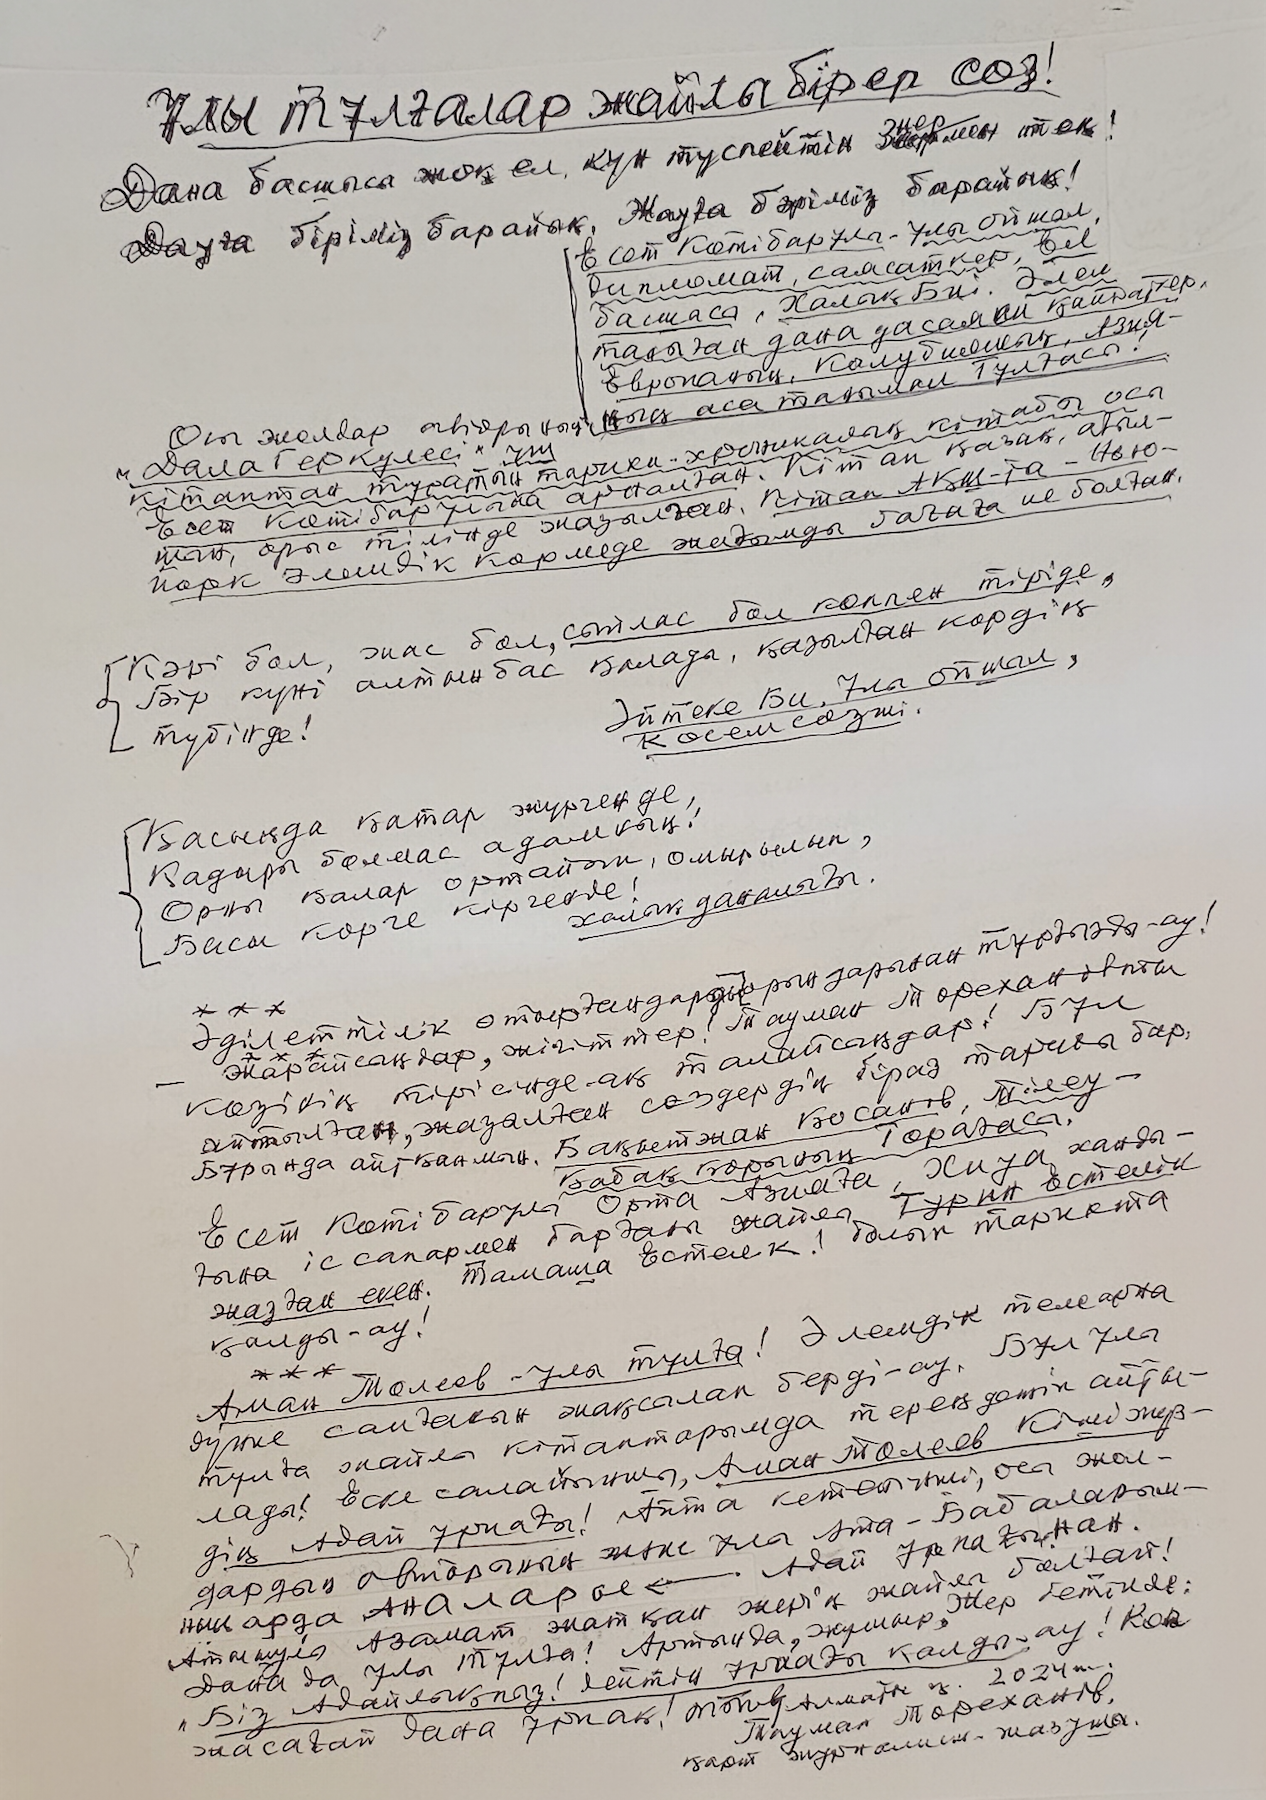 Ұлы тұлғалар жайлы бірер сөз!
Дана басшысы жоқ ел, күн түспейтін жермен тең!
Дауға біріміз барайық, Жауға бәріміз барайық!
Есет Көтібарұлы - ұлы ойшыл,
дипломат, саясаткер, Ел
басшысы, Халық Биі. Әлем
таныған дана да қайраткер,
Европаның, Колубияның, Азия-
ның аса танымал Тұлғасы!
Осы жолдар авторының
"Дала Геркулесі" үш
кітаптан тұратын тарихи-хроникалық кітабы осы
Есет Көтібарұлына арналған. Кітап қазақ, ағыл-
шын, орыс тілінде жазылған. Кітап АҚШ-та - Нью-
Йорк Әлемдік көрмеде жағымды бағаға ие болған.
Кәрі бол, жас бол, сыйлас бол көппен тіріде,
Бір күні алтын бас қалады, қазылған көрдің
түбінде!
Әйтеке Би, Ұлы ойшыл,
көсем сөзші.
Қасыңда қатар жүргенде,
Қадыры болмас адамның!
Орны қалар ортайып, омырылып,
Басы көрге кіргенде!
халық даналығы.
***
Әділеттілік отырғандарды орындарынан тұрғызды-ау!
- Жарайсыңдар, жігіттер! Тауман Төрехановты
көзінің тірісінде-ақ талайсыңдар! Бұл
айтылған, жазылған сөздердің біраз тарихы бар.
Бұрында айтқанмын. Бақытжан Қосанов, Тілеу-
Қабақ қорының Төрағасы.
Есет Көтібарұлы Орта Азияға, Хиуа ханды-
ғына іссапармен барғаны жайлы Тұрын Естелік
жазған екен. Тамаша Естелік! болып тарихта
қалды-ау!
***
Аман Төлеев - ұлы тұлға! Әлемдік телеарна
дүние салғанын жақсалап берді-ау. Бұл ұлы
тұлға жайлы кітаптарымда тереңдетіп айты-
лады! Еске салайыншы, Аман Төлеев Кіші жүз-
дің Адай ұрпағы! Айта кетейінші, осы жол-
дардың авторының және ұлы Ата-Бабаларым-
ның арда АНАЛАРЫ ← Адай ұрпағынан.
Азамат жатқан жерің жайлы болғай!
Дана да ұлы тұлға! Артында, жұмыр, Жер бетінде:
"Біз Адайлықпыз! дейтін ұрпағы қалды-ау! Көп
жасағай дана ұрпақ! Алматы қ. 2024 ж.
Тауман Төреханов,
қарт журналист-жазушы.